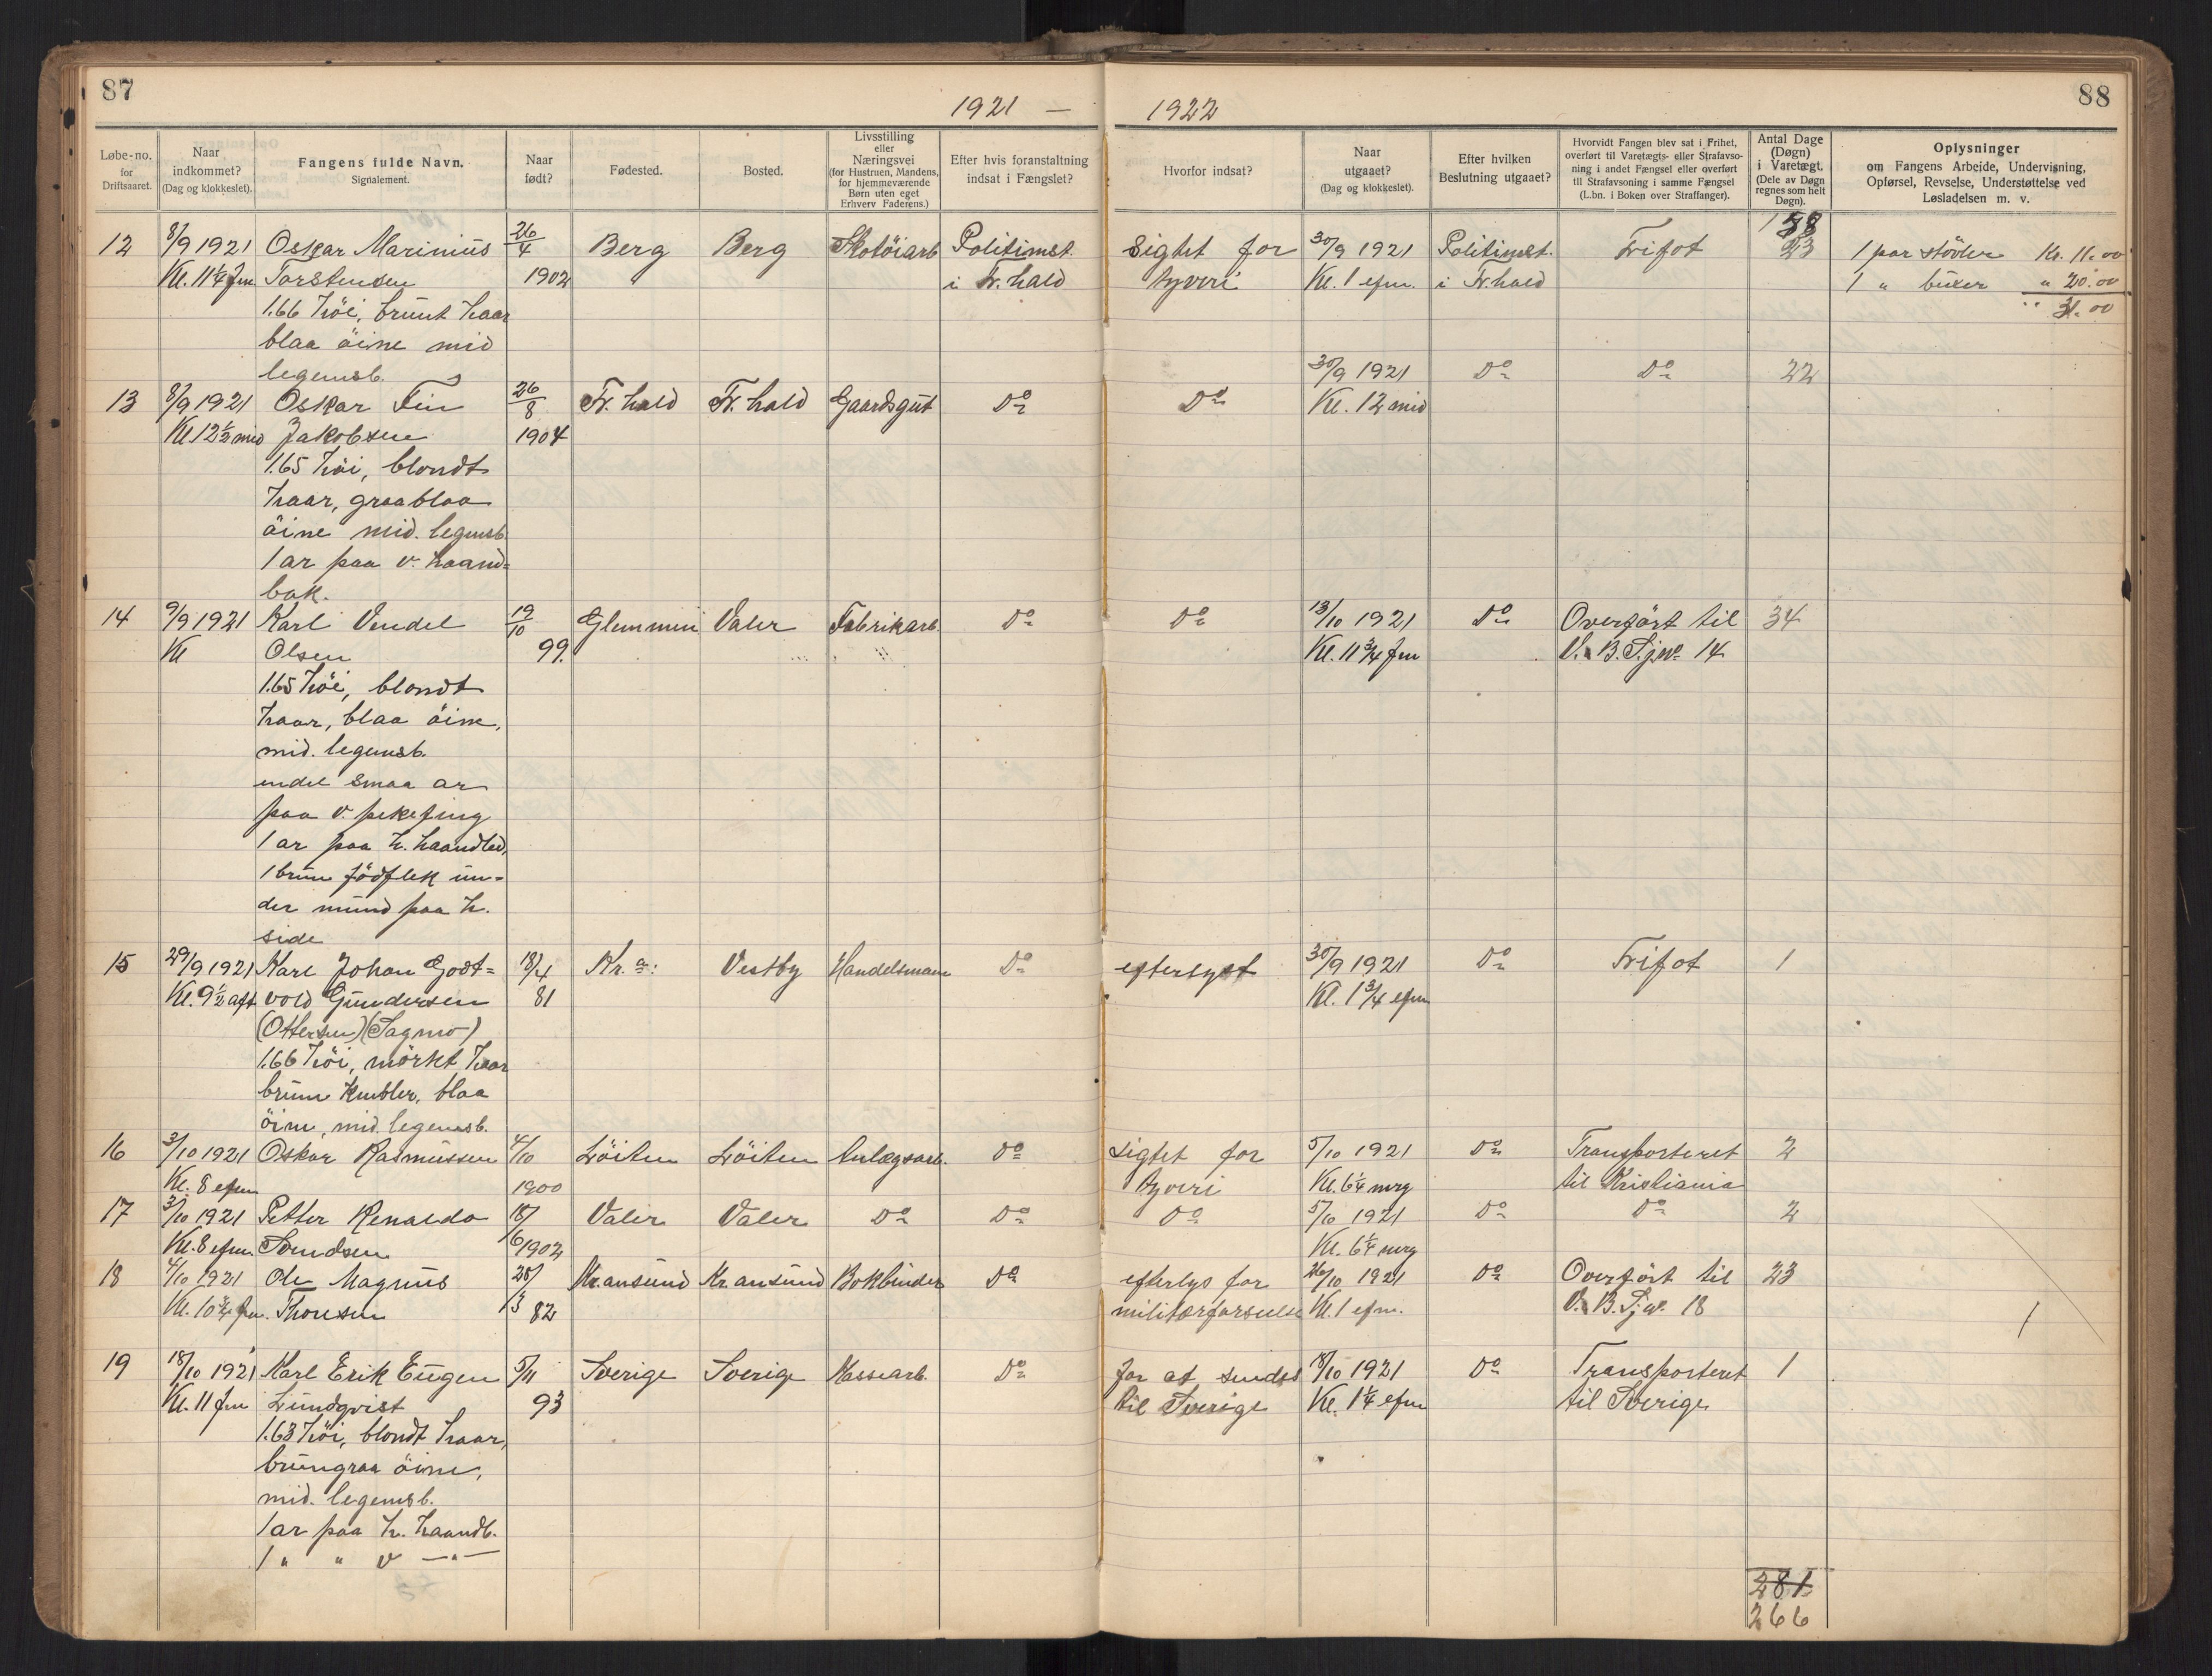 87
88
1921 — 1922
Løbe-no. for Driftsaaret.
Naar indkommet? (Dag og klokkeslet).
Fangens fulde Navn. Signalement.
Naar født?
Fødested.
Bosted.
Livsstilling eller Næringsvei (for Hustruen, Mandens, for hjemmeværende Børn uten eget Erhverv Faderens.)
Efter hvis foranstaltning indsat i Fængslet?
Hvorfor indsat?
Naar utgaaet? (Dag og klokkeslet).
Efter hvilken Beslutning utgaaet?
Hvorvidt Fangen blev sat i Frihet, overført til Varetægts- eller Strafavsoning i andet Fængsel eller overført til Strafavsoning i samme Fængsel (L.bn. i Boken over Straffanger).
Antal Dage (Døgn) i Varetægt. (Dele av Døgn regnes som helt Døgn).
Oplysninger om Fangens Arbeide, Undervisning, Opførsel, Revselse, Understøttelse ved Løsladelsen m. v.
158
12 8/9 1921 Oskar Marinius 26/4 Berg Berg Skotöiarb Politimst. Sigtet for 30/9 1921 Politimst. Frifot 23 1 par stövler Kr. 11.00
Kl. 11 1/4 fm Torstensen 1902 i Fr. hald tyveri Kl. 1 efm. i Fr. hald 1 " buxer " 20.00
1.66 höi, brunt haar " 31.00
blaa öine mid
legemsb. 30/9 1921 Do Do 22
13 8/9 1921 Oskar Fin 26/8 Fr. hald Fr. hald Gaardsgut Do Do Kl. 12 mid
Kl 12 1/2 mid Jakobsen 1904
1.65 höi, blondt
haar, graablaa
öine mid. legemsb.
1 ar paa v. haand=
bak.
14 9/9 1921 Karl Vendel 19/10 Glemmen Valer Fabrikarb. Do Do 13/10 1921 Do Overfört til 34
Kl Olsen 99. Kl. 11 3/4 fm 14
1.65 höi, blondt
haar, blaa öine,
mid. legemsb.
endel smaa ar
paa v. pekefing
1 ar paa h. haandled,
1 brun födflek un=
der mund paa h.
side
15 29/9 1921 Karl Johan Godt= 18/4 Kr.a: Vestby Handelsmann Do efterlyst 30/9 1921 Do Frifot 1
Kl. 9 1/2 aft vold Gundersen 81 Kl. 1 3/4 efm
(Ottersen) (Sagmo)
1.66 höi, mörkt haar
brune knebler, blaa
öine, mid. legemsb.
16 3/10 1921 Oskar Rasmussen 4/10 Löiten Löiten Anlægsarb. Do Sigtet for 5/10 1921 Do Transporteret 2
Kl. 8 efm 1900 tyveri Kl. 6 1/4 mrg til Kristiania
17 3/10 1921 Petter Renaldo 18/6 Valer Valer Do Do Do 5/10 1921 Do Do 2
Kl. 8 efm. Svendsen 1902 Kl. 6 1/4 mrg
18 4/10 1921 Ole Magnus 28/3 Kr.ansund Kr.ansund Bokbinder Do efterlys for 26/10 1921 Do Overfört til 23
Kl. 10 3/4 fm. Thoresen 82 militærforseelse Kl. 1 efm. 18
1
19 18/10 1921 Karl Erik Eugen 5/11 Sverige Sverige Kassearb. Do for at sendes 18/10 1921 Do Transporteret 1
Kl. 11 fm Lundqvist 93 til Sverige Kl. 1 1/4 efm til Sverige
1.63 höi, blondt haar,
brungraa öine,
mid. legemsb.
1 ar paa h. haandb.
1 " " v —"—
281
266